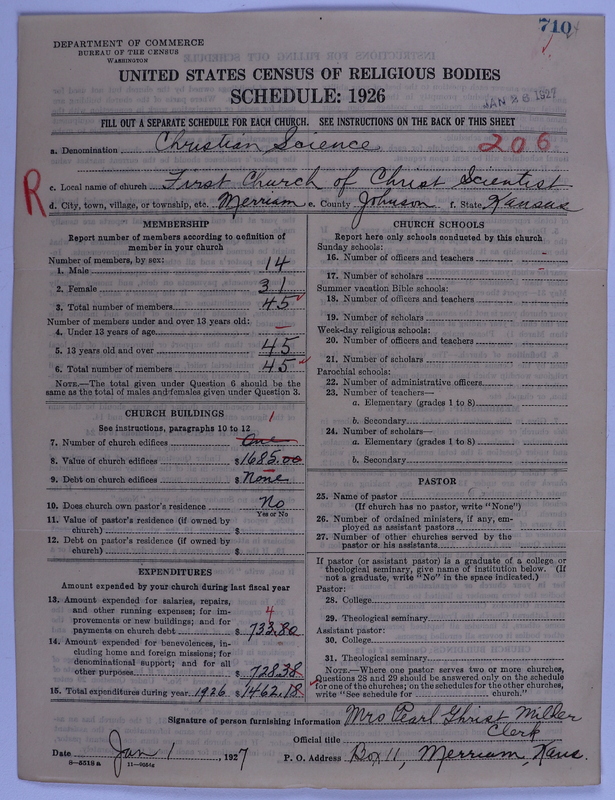 710
DEPARTMENT OF COMMERCE
BUREAU OF THE CENSUS
WASHINGTON
UNITED STATES CENSUS OF RELIGIOUS BODIES
SCHEDULE: 1926
JAN 26 1927
FILL OUT A SEPARATE SCHEDULE FOR EACH CHURCH. SEE INSTRUCTIONS ON THE BACK OF THIS SHEET
a. Denomination Christian Science 206
R
c. Local name of church First Church of Christ Scientist
d. City, town, village, or township, etc. Merriam e. County Johnson f. State Kansas
MEMBERSHIP
Report number of members according to definition of
member in your church
Number of members, by sex:
1. Male 14
2. Female 31
3. Total number of members 45
Number of members under and over 13 years old:
4. Under 13 years of age —
5. 13 years old and over 45
6. Total number of members 45
NOTE.—The total given under Question 6 should be the
same as the total of males and females given under Question 3.
CHURCH BUILDINGS
See instructions, paragraphs 10 to 12
1
7. Number of church edifices One
8. Value of church edifices $1685.00
9. Debt on church edifices $ None
10. Does church own pastor's residence No
Yes or No
11. Value of pastor's residence (if owned by
church) $
12. Debt on pastor's residence (if owned by
church) $
EXPENDITURES
Amount expended by your church during last fiscal year
13. Amount expended for salaries, repairs,
and other running expenses; for im-
provements or new buildings; and for
4
payments on church debt $ 733.80
14. Amount expended for benevolences, in-
cluding home and foreign missions; for
denominational support; and for all
other purposes 728.38
15. Total expenditures during year 1926 $1462.18
CHURCH SCHOOLS
Report here only schools conducted by this church
Sunday schools:
16. Number of officers and teachers
17. Number of scholars
Summer vacation Bible schools:
18. Number of officers and teachers
19. Number of scholars
Week-day religious schools:
20. Number of officers and teachers
21. Number of scholars
Parochial schools:
22. Number of administrative officers
23. Number of teachers—
a. Elementary (grades 1 to 8)
b. Secondary
24. Number of scholars—
a. Elementary (grades 1 to 8)
b. Secondary
PASTOR
25. Name of pastor
(If church has no pastor, write "None")
26. Number of ordained ministers, if any, em-
ployed as assistant pastors
27. Number of other churches served by the
pastor or his assistants
If pastor (or assistant pastor) is a graduate of a college or
theological seminary, give name of institution below. (If
not a graduate, write "No" in the space indicated.)
Pastor:
28. College
29. Theological seminary
Assistant pastor:
30. College
31. Theological seminary
NOTE.—Where one pastor serves two or more churches,
Questions 28 and 29 should be answered only on the schedule
for one of the churches; on the schedules for the other churches,
write "See schedule for church."
Signature of person furnishing information Mrs Pearl Ghrist Miller
Official title Clerk
Date Jan 1, 1927 P. O. Address Box 11, Merriam, Kans.
8—5518 a 11—9054